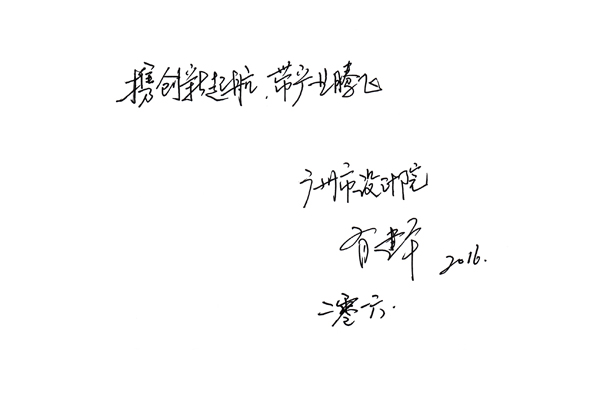 携创新起航,带产业腾飞
广州市设计院
2016.
二零一六.